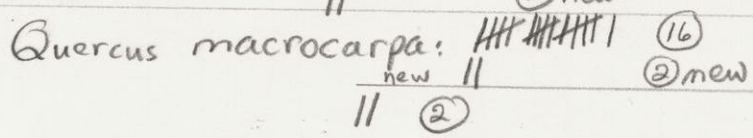 Quercus macrocarpa: 𝍸 𝍸 𝍸 | ⑯
new || ② new
|| ②